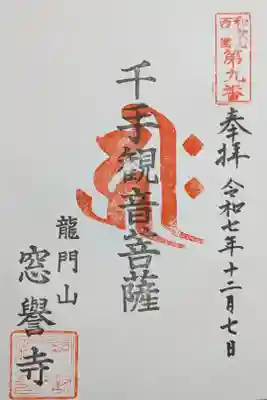 西國
第九番
奉拝 令和七年十二月七日
千手観音菩薩
龍門山
窓誉寺